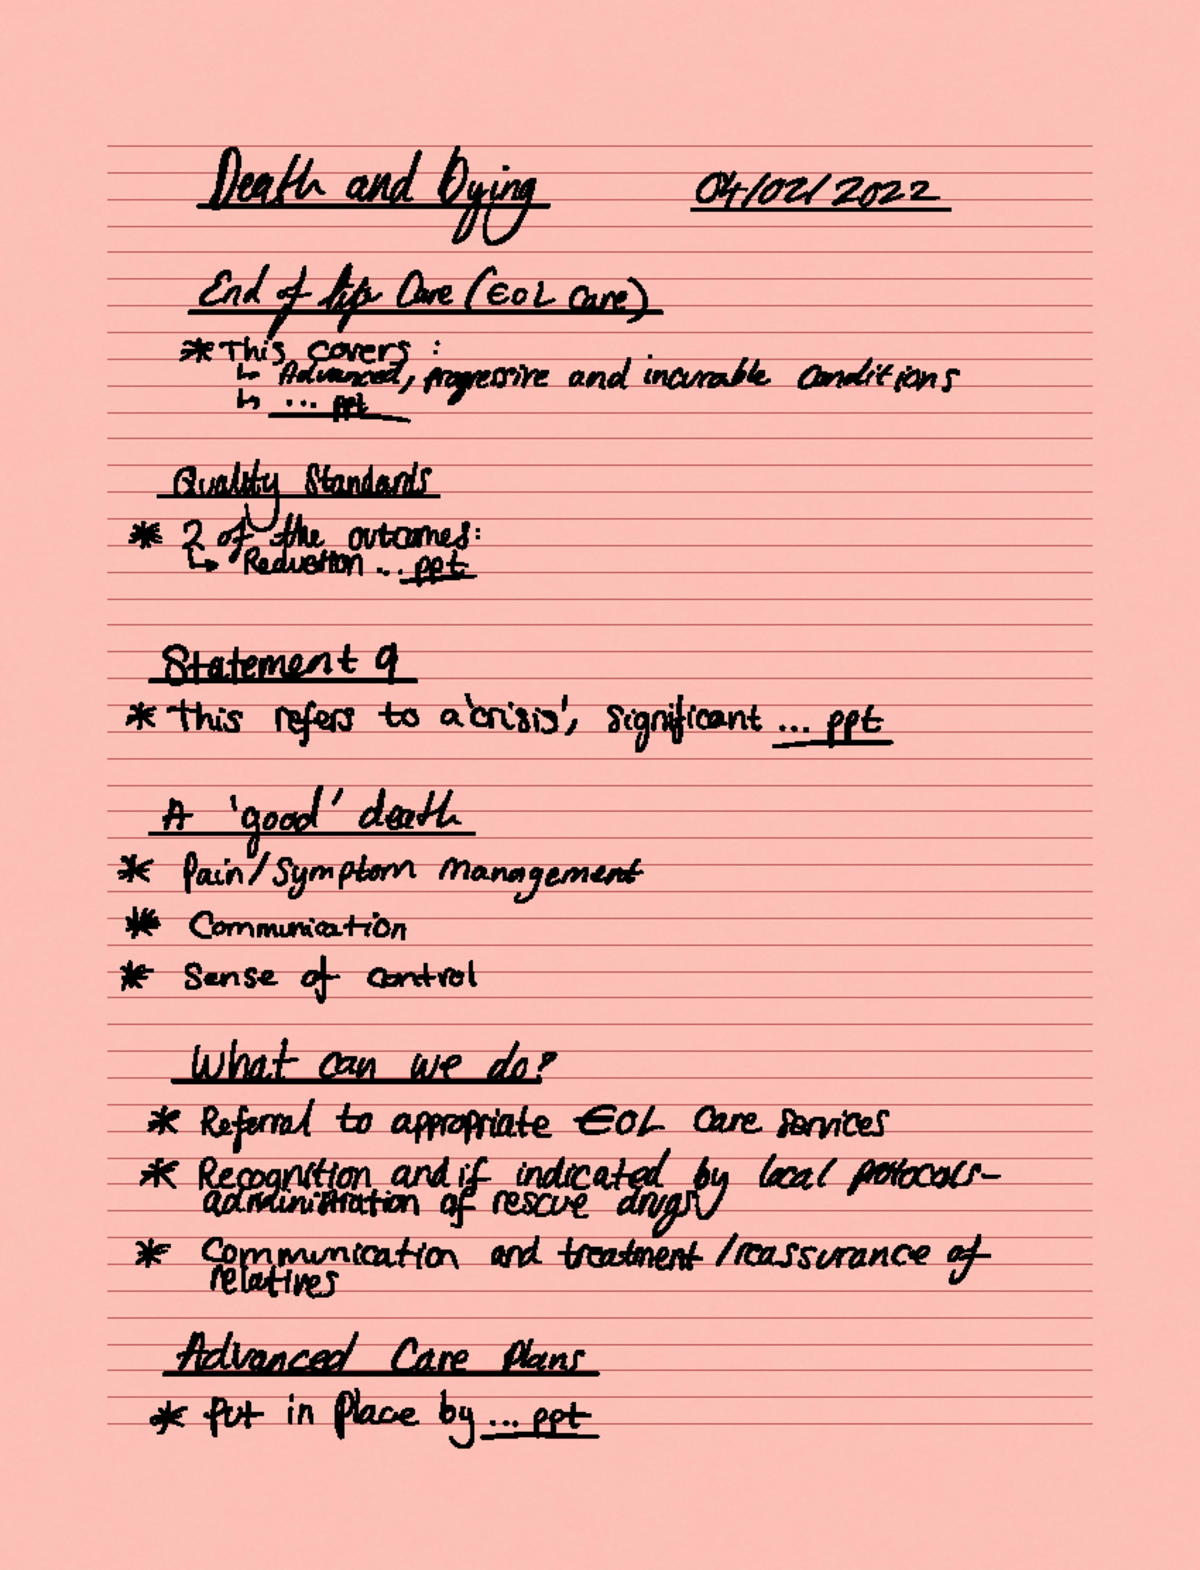 Death and Dying 04/02/2022
End of life Care (EOL Care)
* This covers :
↳ Advanced, progressive and incurable conditions
↳ ... ppt
Quality Standards
* 2 of the outcomes:
↳ Reduction ... ppt
Statement 9
* This refers to a 'crisis', significant ... ppt
A 'good' death
* Pain/Symptom Management
* Communication
* Sense of control
What can we do?
* Referral to appropriate EOL Care Services
* Recognition and if indicated by local protocols-
administration of rescue drugs
* Communication and treatment /reassurance of
relatives
Advanced Care Plans
* Put in Place by ... ppt